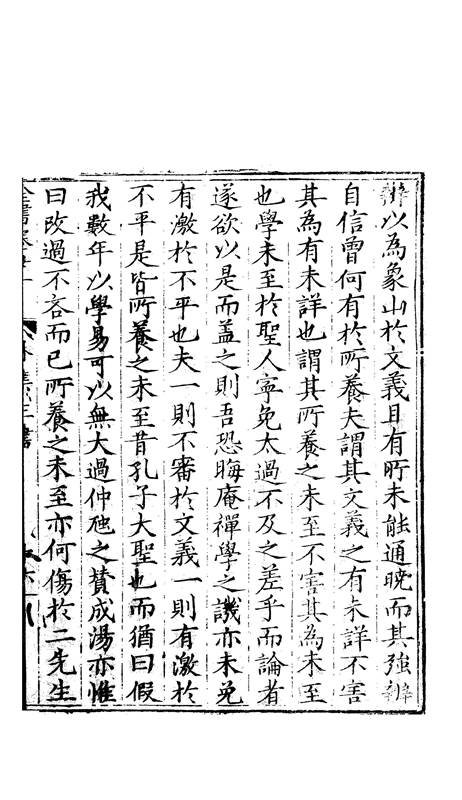 辨以為象山於文義且有所未能通曉而其強辨
自信曾何有於所養夫謂其文義之有未詳不害
其為有未詳也謂其所養之未至不害其為未至
也學未至於聖人寧免太過不及之差乎而論者
遂欲以是而盖之則吾恐晦庵禪學之譏亦未免
有激於不平也夫一則不審於文義一則有激於
不平是皆所養之未至昔孔子大聖也而猶曰假
我數年以學易可以無大過仲虺之賛成湯亦惟
曰改過不吝而已所養之未至亦何傷於二先生